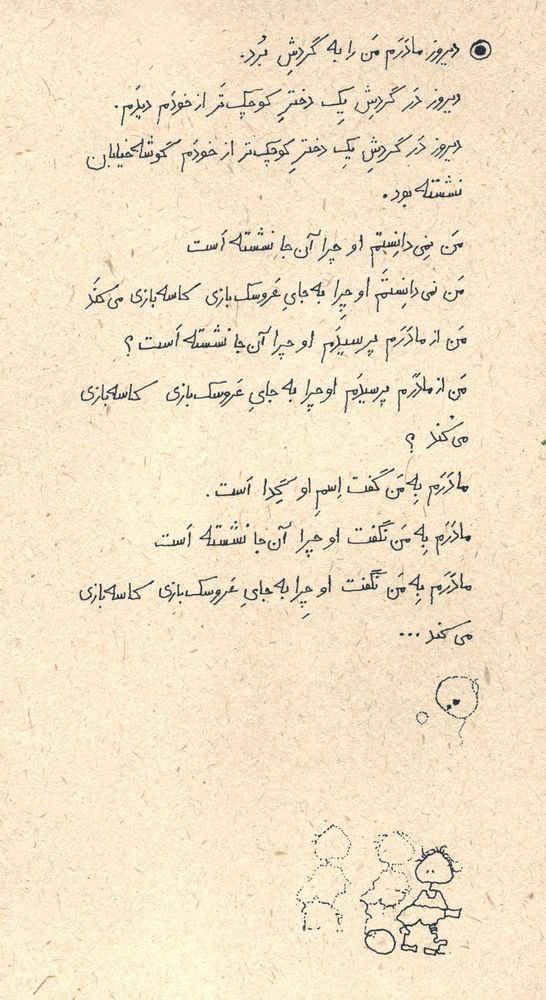 دیروز مادَرَم مَن را به گردشِ بُرد.
دیروز دَر گردشِ یِک دخترِ کوچِک‌تَر از خودَم دیدَم.
دیروز دَر گردشِ یِک دخترِ کوچِک‌تر از خودَم گوشه خیابان
نشسته بود.
مَن نِمی‌دانِستم او چرا آن‌جا نشسته اَست
مَن نمی‌دانِستَم او چِرا به جایِ عَروسک‌بازی کاسه‌بازی می‌کُنَد
مَن از مادَرَم پرسیدَم او چرا آن‌جا نشسته اَست؟
مَن از مادَرَم پرسیدَم او چرا به جایِ عَروسک‌بازی کاسه‌بازی
می‌کُند؟
مادَرَم بِه مَن گفت اِسمِ او گِدا اَست.
مادَرَم بِه مَن نگفت او چرا آن‌جا نشسته اَست
مادَرَم بِه مَن نگفت او چِرا به جایِ عَروسک‌بازی کاسه‌بازی
می‌کند ...